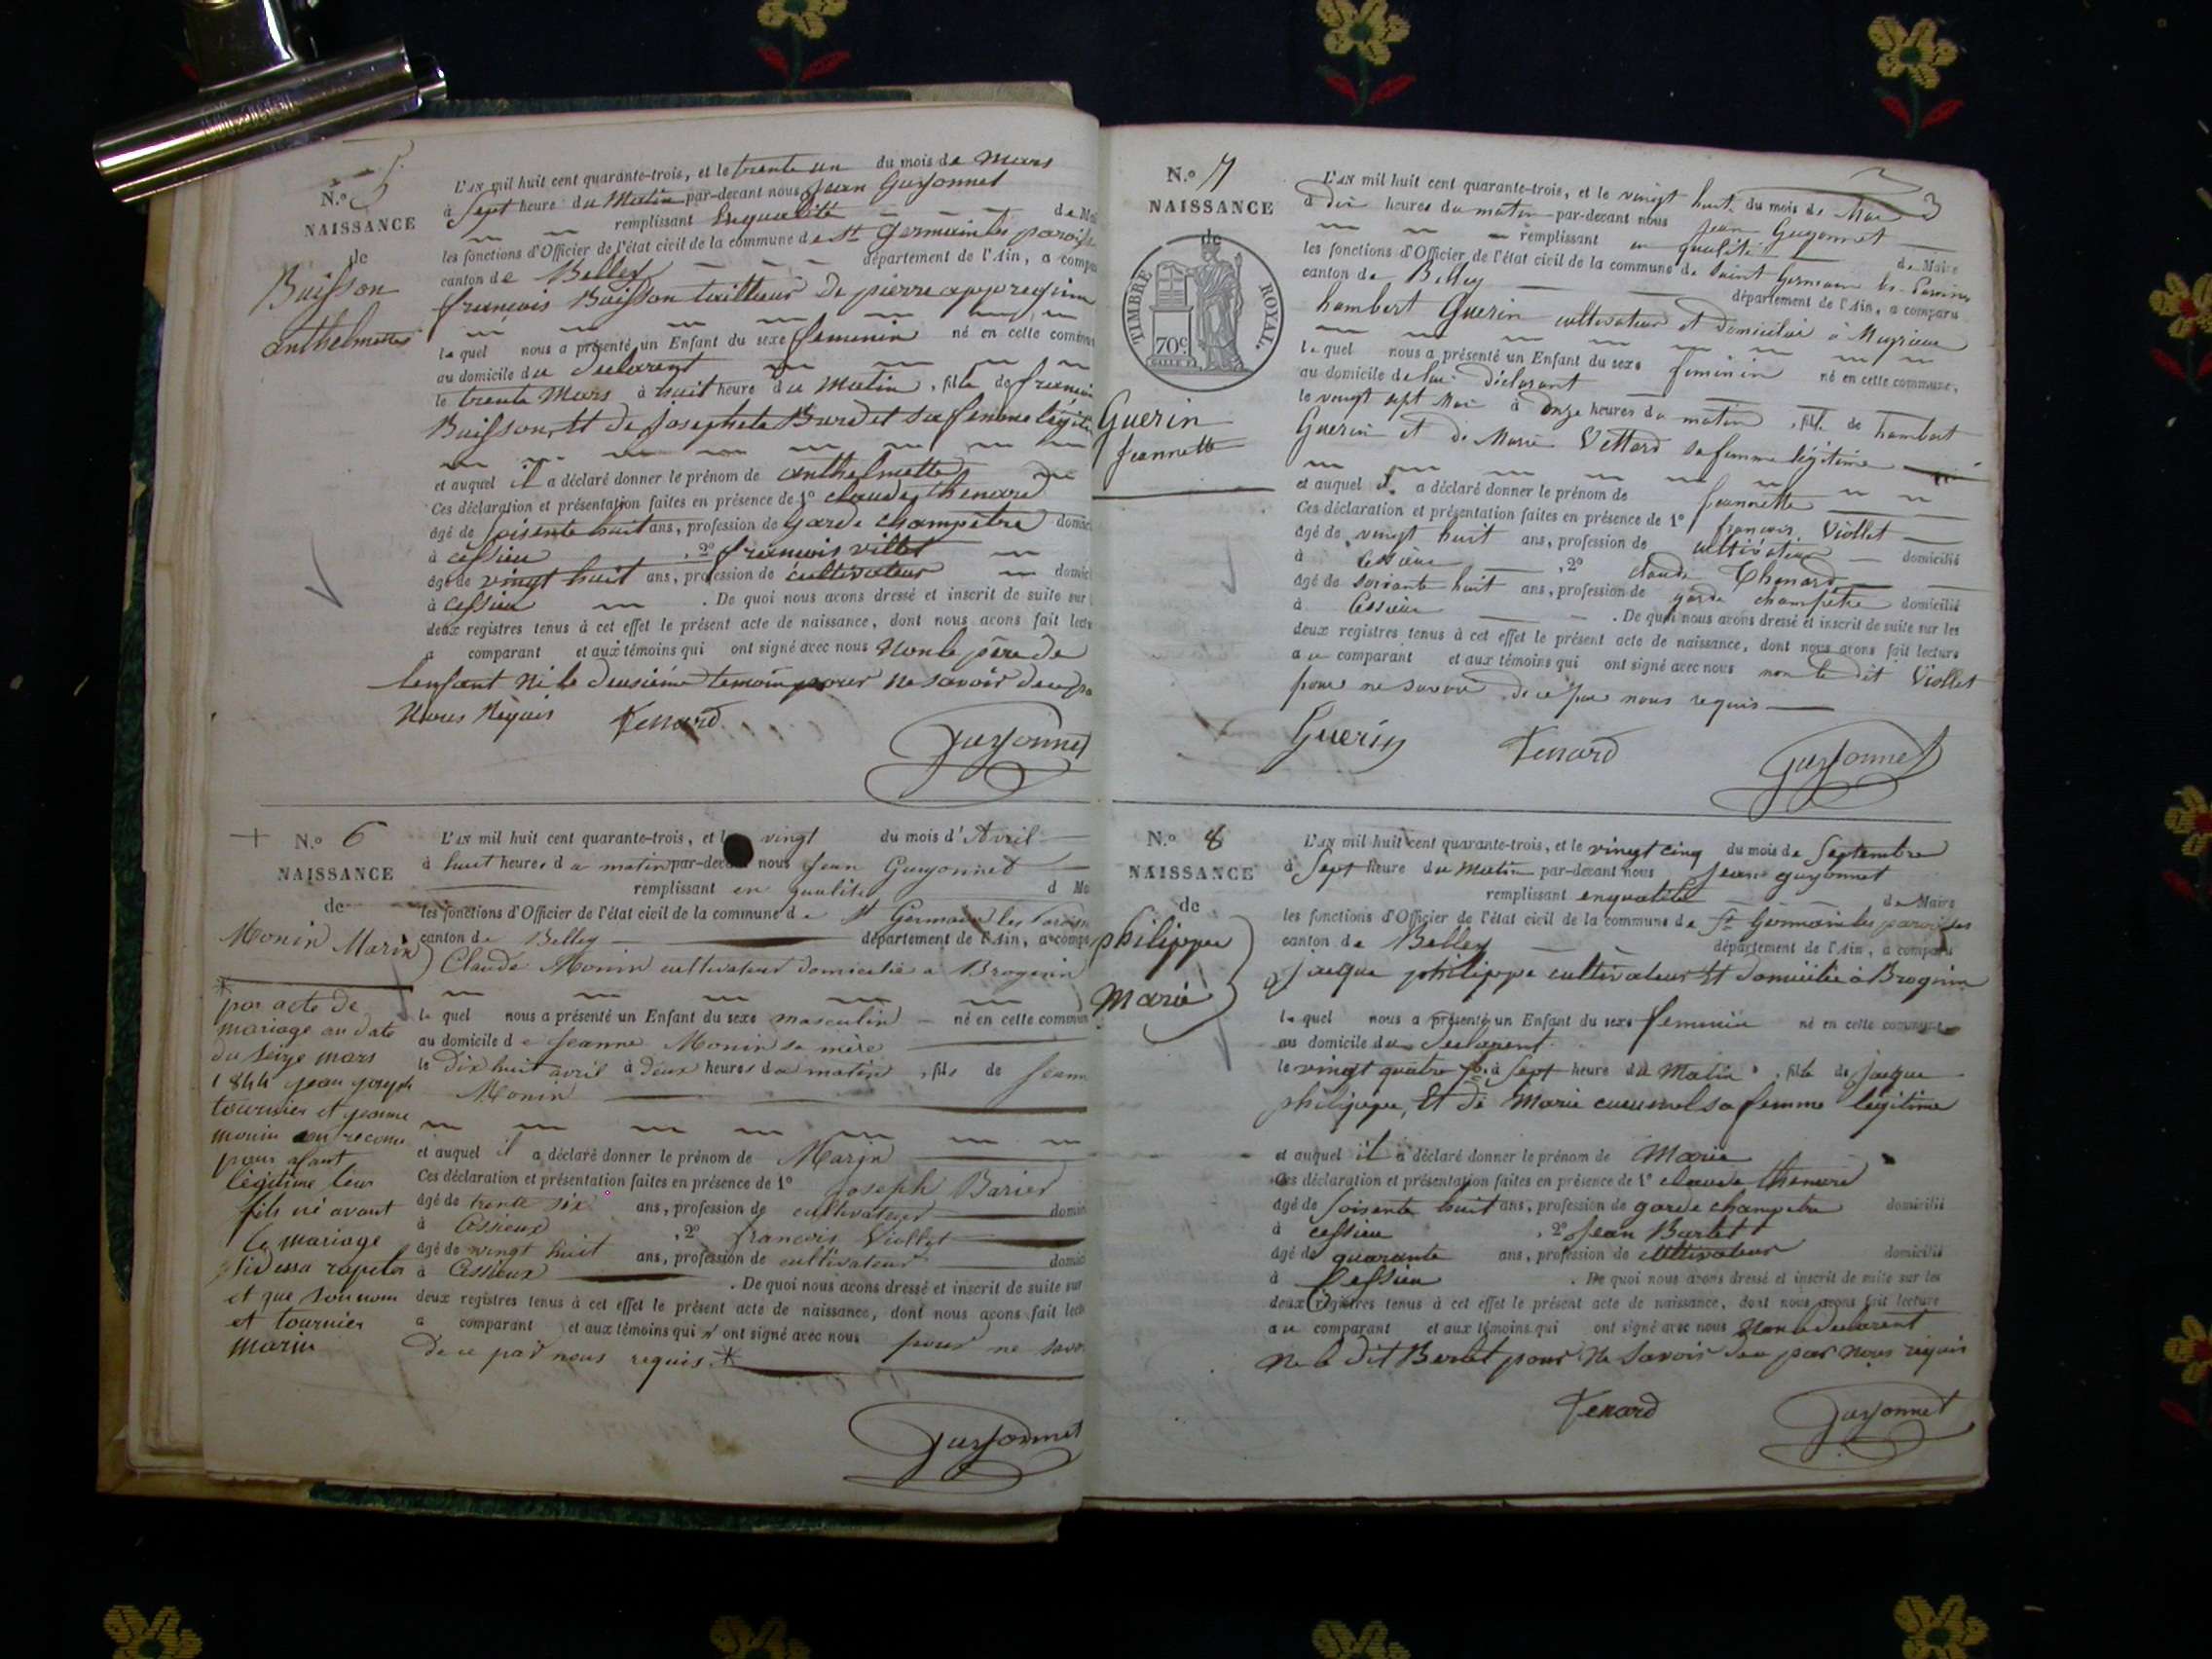 N.o 5
NAISSANCE
de
Buisson
anthelmette
L'AN mil huit cent quarante-trois, et le trente un du mois de Mars
à Sept heure du Matin par-devant nous Jean Guyonnet
remplissant enqualité de Mai
les fonctions d'Officier de l'état civil de la commune de St Germain les parois
canton de Belley département de l'Ain, a compa
francois Buisson tailleur de pierre
le quel nous a présenté un Enfant du sexe feminin né en cette commun
au domicile du declarent
le trente Mars à huit heure du Matin, fille de francoi
Buisson, Et de Josephete Burdet sa femme légiti
et auquel il a déclaré donner le prénom de anthelmette
Ces déclaration et présentation faites en présence de 1º claude thenard
âgé de soisente huit ans, profession de garde champêtre domici
à cessieu, 2º francois villet
âgé de vingt huit ans, profession de cultivateur domici
à cessieu. De quoi nous avons dressé et inscrit de suite sur
deux registres tenus à cet effet le présent acte de naissance, dont nous avons fait lectu
a comparant et aux témoins qui ont signé avec nous Non le père de
lenfant ni le deusième temoin pour ne savoir dece pa
Nous Requis
Tenard
Guyonnet
N.o 6
NAISSANCE
de
Monin Marin
L'AN mil huit cent quarante-trois, et le vingt du mois d'Avril
à huit heures du matin par-devant nous Jean Guyonnet
remplissant en qualité d Ma
les fonctions d'Officier de l'état civil de la commune de St Germain les Parois
canton de Belley département de l'Ain, a compa
Claude Monin cultivateur domicilié a Brognin
le quel nous a présenté un Enfant du sexe masculin né en cette commun
au domicile de Jeanne Monin sa mère
le Dix huit avril à deux heures du matin, fils de Jeann
Monin
et auquel il a déclaré donner le prénom de Marin
Ces déclaration et présentation faites en présence de 1º Joseph Barier
âgé de trente six ans, profession de cultivateur domici
à Cessieux, 2º francois Viollet
âgé de vingt huit ans, profession de cultivateur domici
à Cessieux. De quoi nous avons dressé et inscrit de suite sur
deux registres tenus à cet effet le présent acte de naissance, dont nous avons fait lect
a comparant et aux témoins qui n'ont signé avec nous pour ne savoi
de ce par nous requis *
Guyonnet
* par acte de
mariage au date
du seize mars
1844 jean joseph
tournier et jeanne
monin on reconu
pour enfant
légitime leur
fils né avant
le mariage
et que son nom
et tournier
marin
N.o 7
NAISSANCE
de
TIMBRE ROYAL.
70c
Guerin
Jeannette
3
L'AN mil huit cent quarante-trois, et le vingt huit du mois de Mai
à dix heures du matin par-devant nous Jean Guyonnet
remplissant en qualité de Maire
les fonctions d'Officier de l'état civil de la commune de Saint Germain les Paroisses
canton de Belley département de l'Ain, a comparu
hambert Guerin cultivateur et domicilié à Meyrieu
le quel nous a présenté un Enfant du sexe feminin né en cette commune,
au domicile de lui déclarant
le vingt sept Mai à onze heures du matin, fille de hambert
Guerin et de Marie Vettard sa femme légitime
et auquel il a déclaré donner le prénom de Jeannette
Ces déclaration et présentation faites en présence de 1º francois Viollet
âgé de vingt huit ans, profession de cultivateur domicilié
à Cessieux, 2º Claude Thenard
âgé de soixante huit ans, profession de garde champêtre domicilié
à Cessieu. De quoi nous avons dressé et inscrit de suite sur les
deux registres tenus à cet effet le présent acte de naissance, dont nous avons fait lecture
au comparant et aux témoins qui ont signé avec nous non le dit Viollet
pour ne savoir de ce par nous requis
Guerin
Tenard
Guyonnet
N.o 8
NAISSANCE
de
philippe
Marie
L'AN mil huit cent quarante-trois, et le vingt cinq du mois de Septembre
à Sept heure du Matin par-devant nous Jean guyonnet
remplissant enqualité de Maire
les fonctions d'Officier de l'état civil de la commune de St Germain les paroisses
canton de Belley département de l'Ain, a comparu
jacque philippe cultivateur Et domicilié à Brognin
le quel nous a présenté un Enfant du sexe feminin né en cette commune
au domicile du declarent
le vingt quatre à Sept heure du Matin, fille de jacque
philippe, Et de Marie sa femme légitime
et auquel il a déclaré donner le prénom de Marie
Ces déclaration et présentation faites en présence de 1º claude thenard
âgé de soisente huit ans, profession de garde champetre domicilié
à cessieu, 2º Jean Barlet
âgé de quarante ans, profession de cultivateur domicilié
à Cessieu. De quoi nous avons dressé et inscrit de suite sur les
deux registres tenus à cet effet le présent acte de naissance, dont nous avons fait lecture
au comparant et aux témoins qui ont signé avec nous Non le declarent
ne le dit Berlet pour ne savoir dece par nous requis
Tenard
Guyonnet